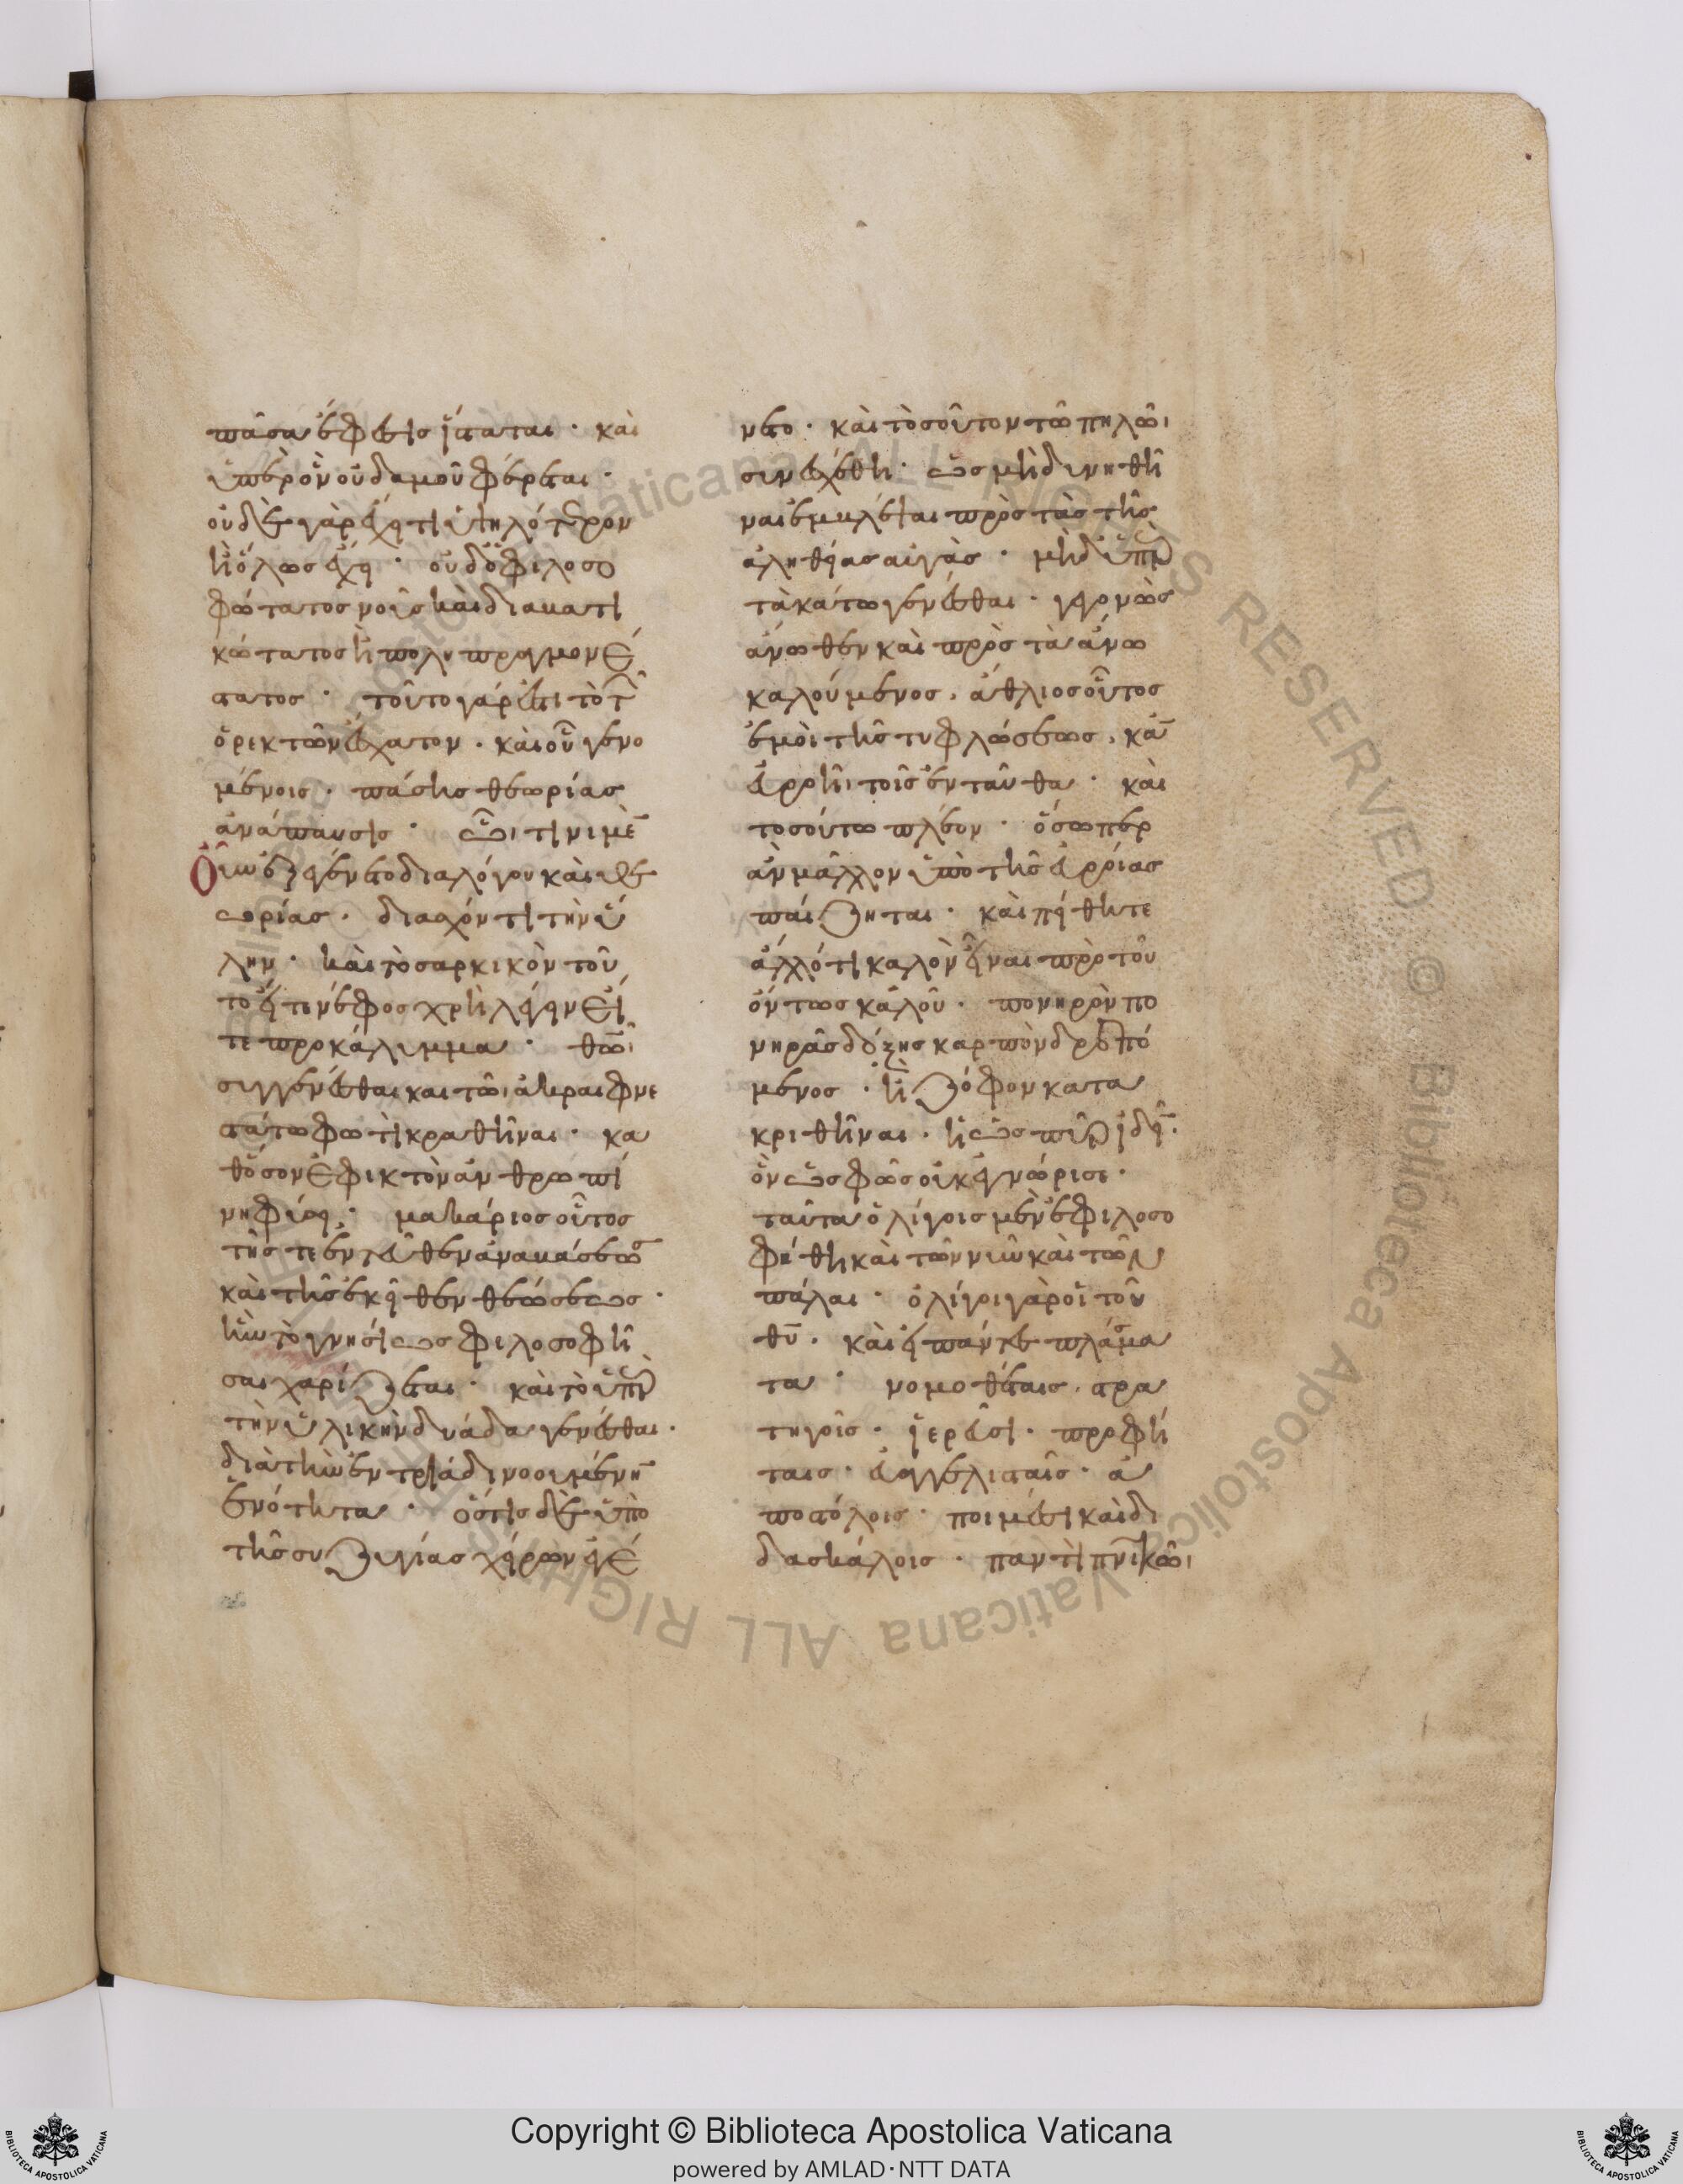 πᾶσα ἔφεσις ἵσταται · καὶ
ὑπὲρ ὃν οὐδαμοῦ φέρεται ·
οὐδὲ γὰρ ἔχει τι ὑψηλότερον
ἢ ὅλως ἕξει · ὁ φιλοσο
φώτατος νοῦς καὶ διαβατι
κώτατος ἢ πολυπραγμονέ
στατος · τοῦτο γάρ ἐστι τὸ τῶν
ὀρεκτῶν ἔσχατον · καὶ οὗ γενο
μένοις · πάσης θεωρίας
ἀνάπαυσις · ὧι τινι μὲν
οὖν ἐξεγένετο διὰ λόγου καὶ θε
ωρίας · διασχόντι τὴν ὕ
λην · καὶ τὸ σαρκικὸν τοῦ
το εἴτε νέφος χρὴ λέγειν εἴ
τε προκάλυμμα · θῶι
συγγενέσθαι καὶ τῶι ἀκραιφνε
στάτω φωτὶ κραθῆναι · κα
θόσον ἐφικτὸν ἀνθρωπί
νη φύσει · μακάριος οὗτος
τῆς τε ἐντεῦθεν ἀναβάσεως
καὶ τῆς ἐκεῖθεν θεώσεως ·
ἣν τὸ γνησίως φιλοσοφῆ
σαι χαρίζεται · καὶ τὸ ὑπὲρ
τὴν ὑλικὴν δυάδα γενέσθαι ·
διὰ τὴν ἐν τριάδι νοουμένην
ἑνότητα · ὅστις δὲ ὑπὸ
τῆς συζυγίας χείρων ἐγέ
νετο · καὶ τοσοῦτον τῶ πηλῶι
συνεσχέθη · ὡς μὴ δυνηθῆ
ναι ἐμβλέψαι πρὸς τὰς τῆς
ἀληθείας αὐγὰς · μηδ' ὑπὲρ
τὰ κάτω γενέσθαι · γεγονὼς
ἄνωθεν καὶ πρὸς τὰ ἄνω
καλούμενος, ἄθλιος οὗτος
ἐμοὶ τῆς τυφλώσεως, κἂν
εὐροῆι τοῖς ἐνταῦθα · καὶ
τοσούτω πλέον · ὅσωπερ
ἂν μᾶλλον ὑπὸ τῆς εὐροίας
παίζηται · καὶ πείθηται
ἄλλό τι καλὸν εἶναι πρὸ τοῦ
ὄντως καλοῦ · πονηρὸν πο
νηρᾶς δόξης καρπὸν δρεπό
μενος · ἢ ζόφον κατα
κριθῆναι · ἢ ὡς πῦρ ἰδεῖν ·
ὃν ὡς φῶς οὐκ ἐγνώρισε ·
ταῦτα ὀλίγοις μὲν ἐφιλοσο
φήθη καὶ τῶν νῦν καὶ τῶν
πάλαι · ὀλίγοι γὰρ οἱ τοῦ
θυ · καὶ εἰ πάντες πλάσμα
τα · νομοθέταις, στρα
τηγοῖς · ἱερεῦσι · προφή
ταις · εὐαγγελισταῖς · ἀ
ποστόλοις · ποιμέσι καὶ δι
δασκάλοις · παντὶ πνικῶι